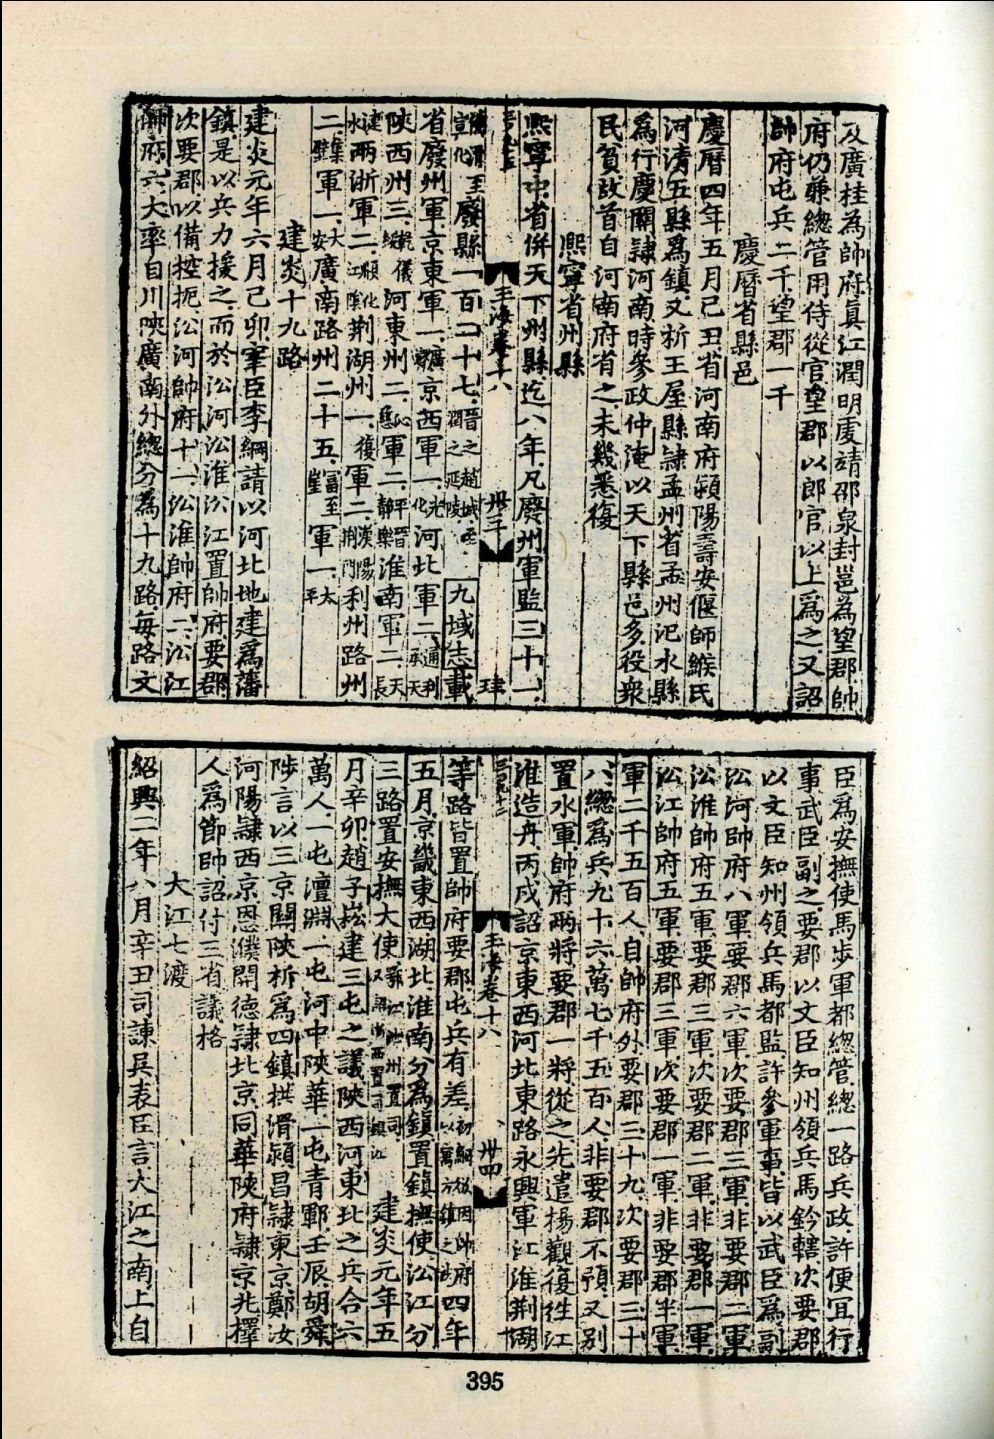 及廣桂為帥府真江潤明䖍靖邵泉封邕為望郡帥
府仍兼總管用侍從官望郡以郎官以上為之又詔
帥府屯兵二千望郡一千
慶曆省縣邑
慶曆四年五月己丑省河南府潁陽壽安偃師緱氏
河清五縣爲鎮又析王屋縣隷孟州省孟州汜水縣
爲行慶關隷河南時參政仲淹以天下縣邑多役衆
民貧故首自河南府省之未幾悉復
熙寧省州縣
熙寧中省併天下州縣迄八年凡廢州軍監三十一
玉海卷十八
卅三
瑋
宣化至廢縣一百二十七晉之趙城
之延陵九域志載
省廢州軍京東軍一廣
京西軍一光
化河北軍二通利
承天
陝西州三乾儀
河東州二
慈軍二平晉
靜樂淮南軍二天
長
漣
水兩浙軍二順化
江陰荆湖州一復軍二漢陽
荆門利州路州
二集
璧軍一大
安廣南路州二十五富至
崖軍一太
平
建炎十九路
建炎元年六月己卯宰臣李綱請以河北地建爲藩
鎮是以兵力援之而於㳂河㳂淮㳂江置帥府要郡
次要郡以備控扼㳂河帥府十一㳂淮帥府二㳂江
帥府六大率自川陝廣南外總分為十九路每路文
臣為安撫使馬歩軍都總管總一路兵政許便宜行
事武臣副之要郡以文臣知州領兵馬鈐轄次要郡
以文臣知州領兵馬都監許參軍事皆以武臣爲副
㳂河帥府八軍要郡六軍次要郡三軍非要郡二軍
㳂淮帥府五軍要郡三軍次要郡二軍非要郡一軍
㳂江帥府五軍要郡三軍次要郡一軍非要郡半軍
軍二千五百人自帥府外要郡三十九次要郡三十
八總爲兵九十六萬七千五百人非要郡不預又別
置水軍帥府兩將要郡一將從之先遣楊觀復徃江
淮造舟丙戌詔京東西河北東路永興軍江淮荆湖
玉海卷十八
卅四
等路皆置帥府要郡屯兵有差初綱欲因帥府
以寓方鎮之
四年
五月京畿東西湖北淮南分爲鎮置鎮撫使㳂江分
三路置安撫大使鄂江池州置司
又
浙西置司鎮江建炎元年五
月辛卯趙子崧建三屯之議陝西河東北之兵合六
萬人一屯澶淵一屯河中陝華一屯青鄆壬辰胡舜
陟言以三京關陝析爲四鎮拱滑潁昌隷東京鄭汝
河陽隷西京恩濮開德隷北京同華陝府隷京兆擇
人爲節帥詔付三省議格
大江七渡
紹興二年八月辛丑司諫吳表臣言大江之南上自
395